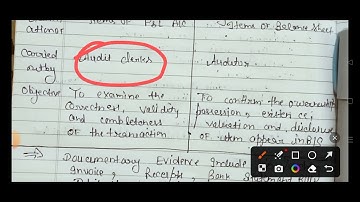 Items of P&L A/C
Items or Balance Sheet
attend
Carried Audit Clerks Auditor
out by
Objective To examine the To confirm the ownership
Correctness, validity possession, existence,
and completeness valuation and disclosure
of the transaction of item appear in B/S
⇒ Documentary Evidence Include
Invoice, Receipts, Bank